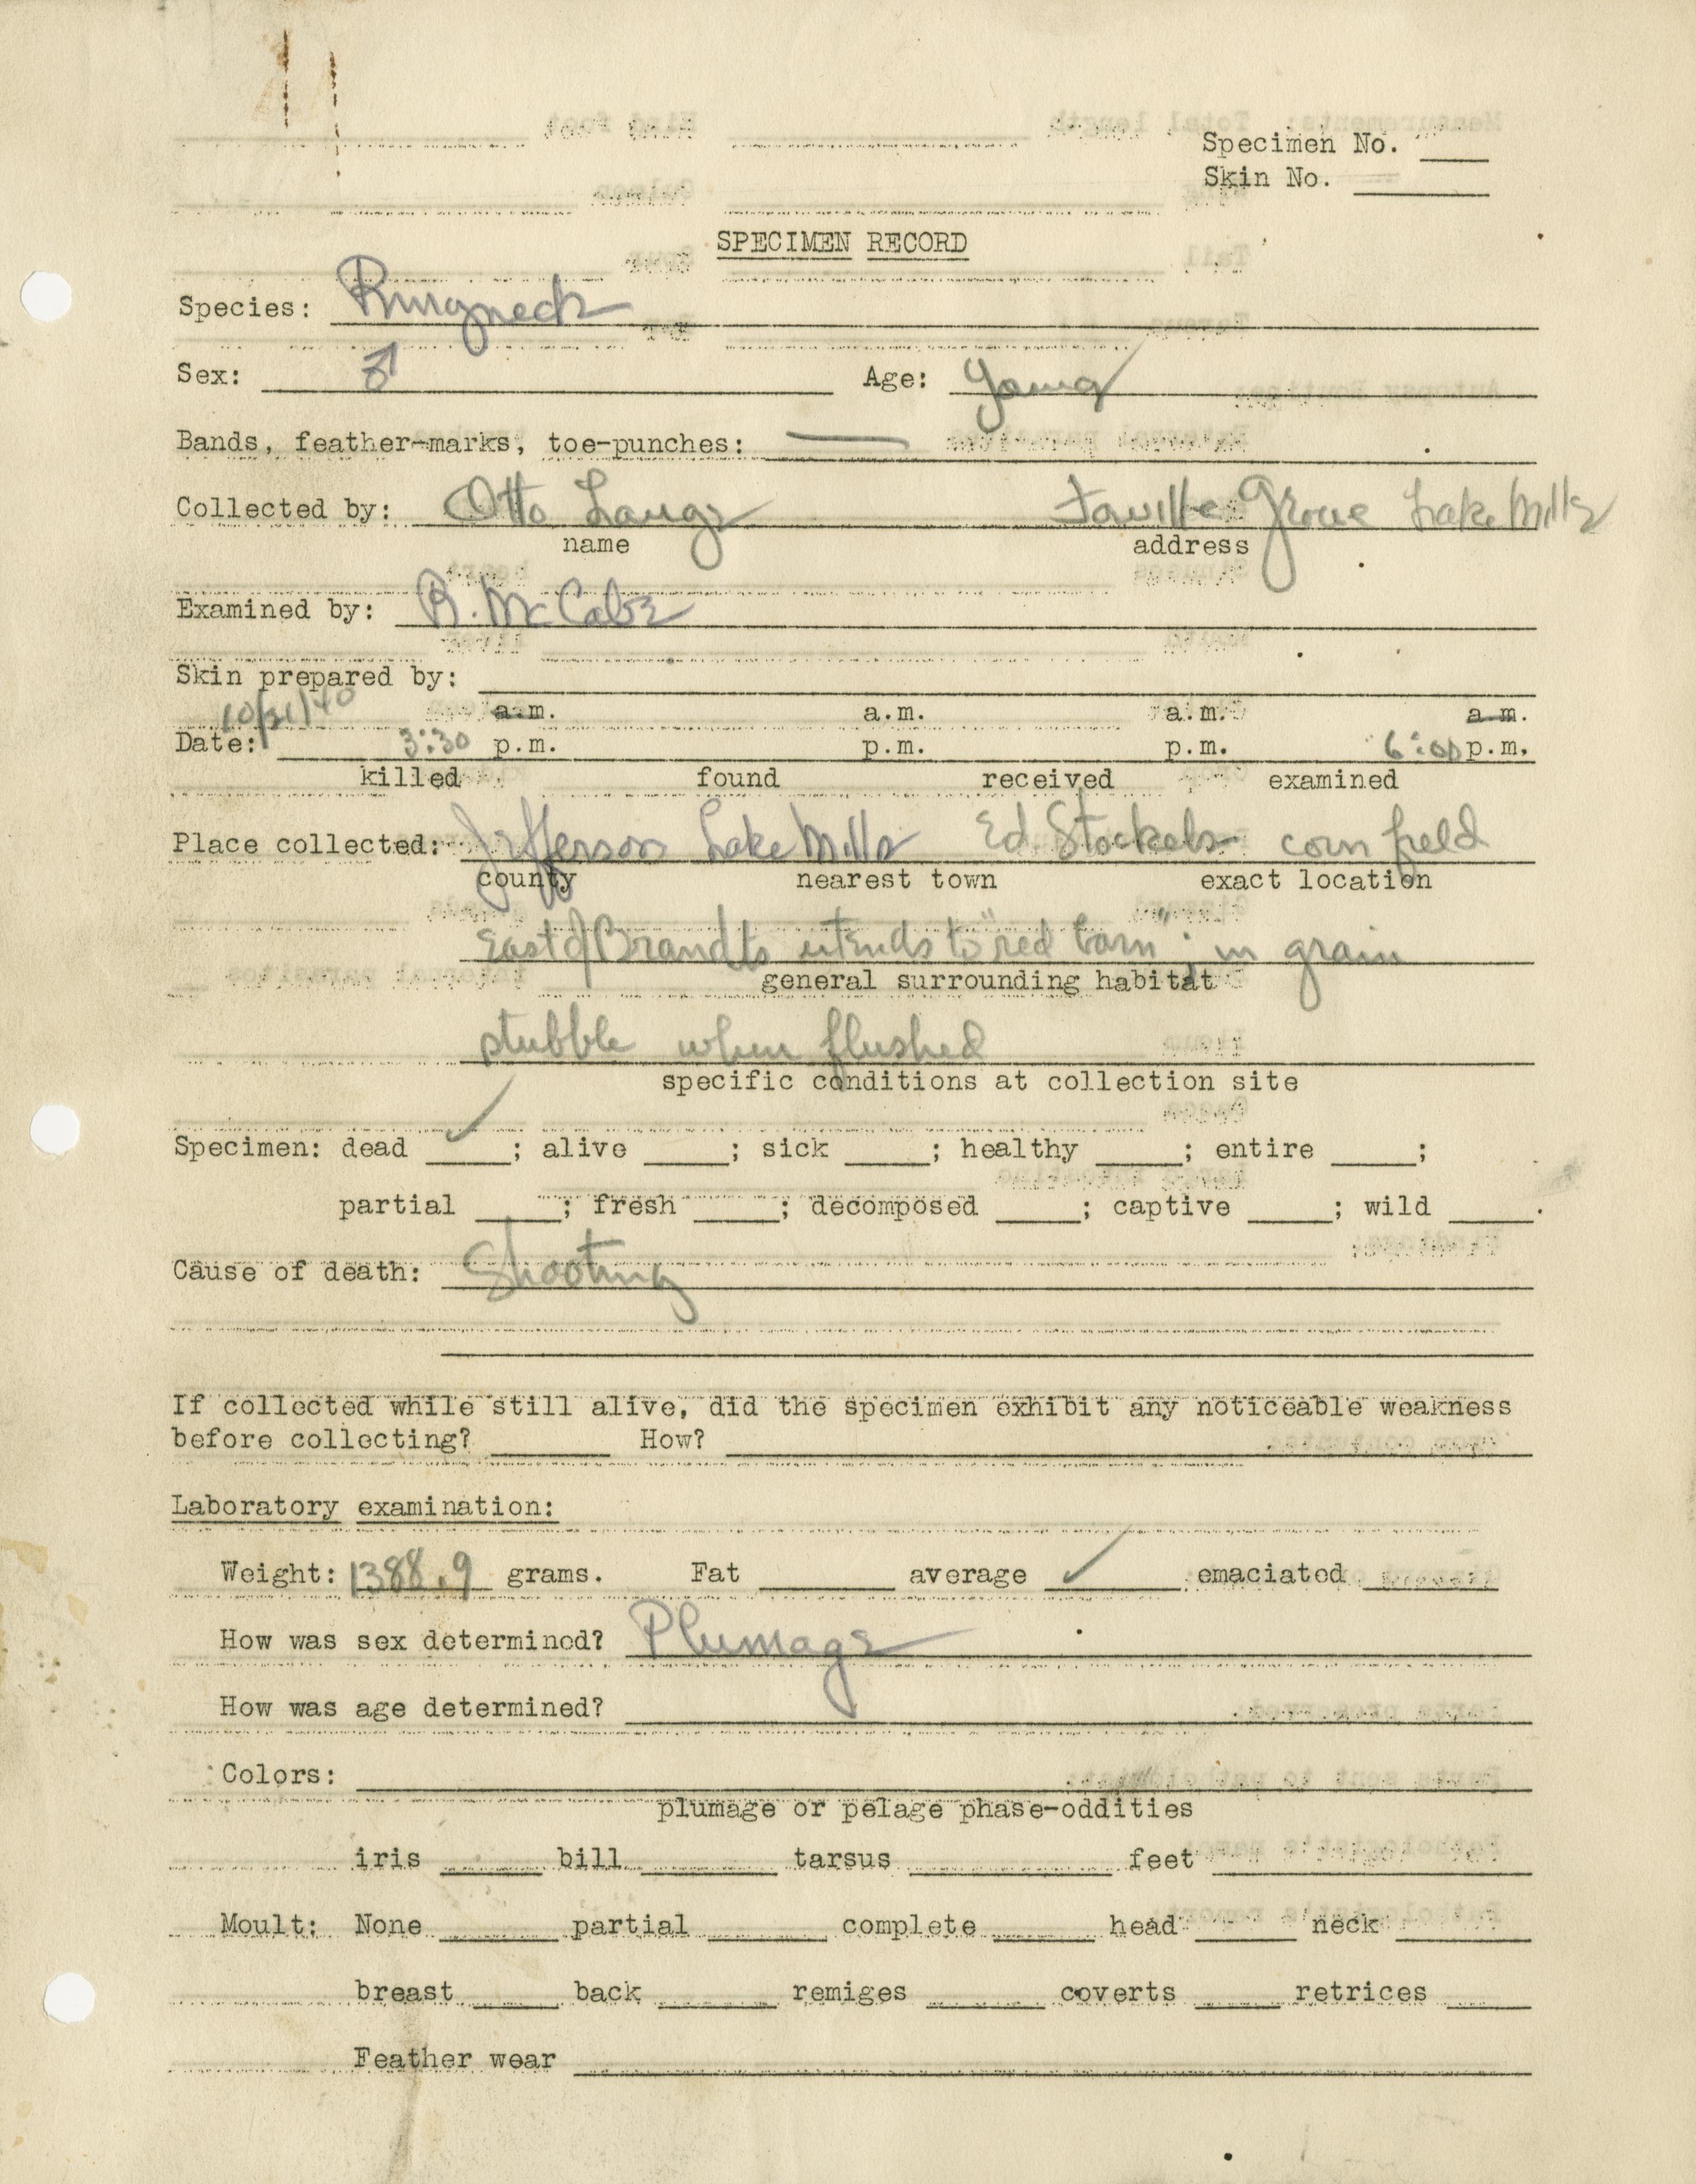 Specimen No. ____
Skin No. ____
SPECIMEN RECORD
Species: Ringneck
Sex: ♂ Age: young
Bands, feather-marks, toe-punches: —
Collected by: Otto Lange Faville Grove Lake Mills
name address
Examined by: R. McCabe
Skin prepared by:
10/21/40 a.m. a.m. a.m. a.m.
Date: 3:30 p.m. p.m. p.m. 6:00 p.m.
killed found received examined
Place collected: Jefferson Lake Mills Ed. Stockels corn field
county nearest town exact location
East of Brandts extends to "red barn"; in grain
general surrounding habitat
stubble when flushed
specific conditions at collection site
Specimen: dead ✓; alive ____; sick ____; healthy ____; entire ____;
partial ____; fresh ____; decomposed ____; captive ____; wild ____.
Cause of death: Shooting
If collected while still alive, did the specimen exhibit any noticeable weakness
before collecting? ____ How? ____
Laboratory examination:
Weight: 1388.9 grams. Fat ____ average ✓ emaciated ____
How was sex determined? Plumage
How was age determined?
Colors:
plumage or pelage phase-oddities
iris ____ bill ____ tarsus ____ feet ____
Moult: None ____ partial ____ complete ____ head ____ neck ____
breast ____ back ____ remiges ____ coverts ____ retrices ____
Feather wear ____